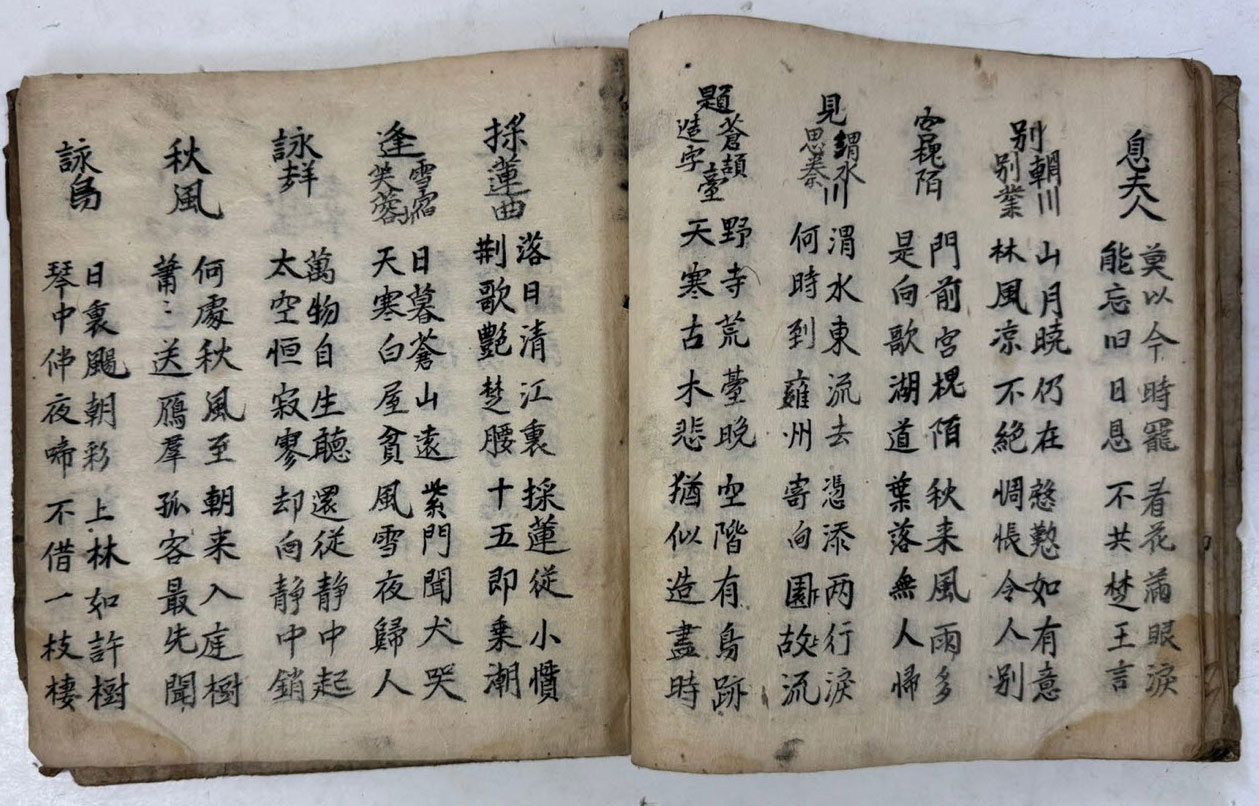 息夫人
莫以今時寵
能忘旧日恩
看花滿眼淚
不共楚王言
別輞川別業
山月暁仍在
林風凉不絕
慇懃如有意
惆悵令人別
宮槐陌
門前宮槐陌
是向歌湖道
秋来風雨多
葉落無人帰
見渭水思秦川
渭水東流去
何時到雍州
憑添两行淚
寄向園故流
題蒼頡造字臺
野寺荒薹晚
天寒古木悲
空階有鳥跡
猶似造盡時
採蓮曲
落日清江裏
荆歌艷楚腰
採蓮從小慣
十五即乗潮
逢雪宿芙蓉山
日暮蒼山遠
天寒白屋貧
紫門聞犬哭
風雪夜歸人
詠
萬物自生聽
太空恒寂寥
還從静中起
却向静中銷
秋風
何處秋風至
蕭〻送鴈羣
朝来入庭樹
孤客最先聞
詠烏
日裏颺朝彩
琴中伴夜啼
上林如許樹
不借一枝棲